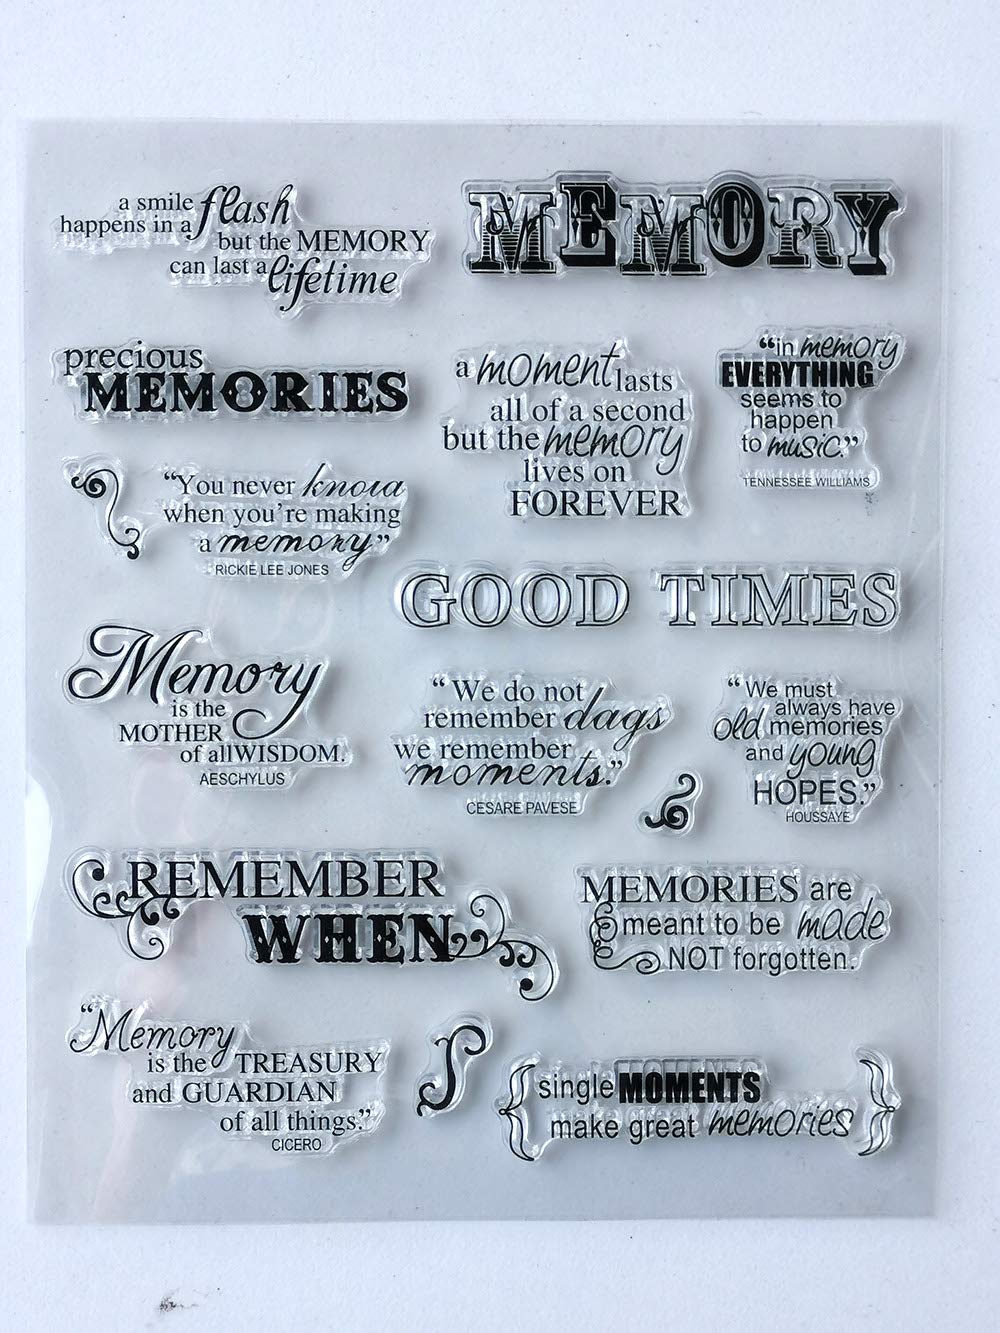 a smile flash
happens in a
but the MEMORY
can last a lifetime
MEMORY
precious
MEMORIES
a moment lasts
all of a second
but the memory
lives on
FOREVER
“in memory
EVERYTHING
seems to
happen
to music.”
TENNESSEE WILLIAMS
“You never know
when you're making
a memory”
RICKIE LEE JONES
GOOD TIMES
Memory
is the
MOTHER
of all WISDOM.
AESCHYLUS
“We do not
remember days
we remember
moments.”
CESARE PAVESE
“We must
always have
old memories
and young
HOPES.”
HOUSSAYE
REMEMBER
WHEN
MEMORIES are
meant to be made
NOT forgotten.
“Memory
is the TREASURY
and GUARDIAN
of all things.”
CICERO
{ single MOMENTS
make great memories }